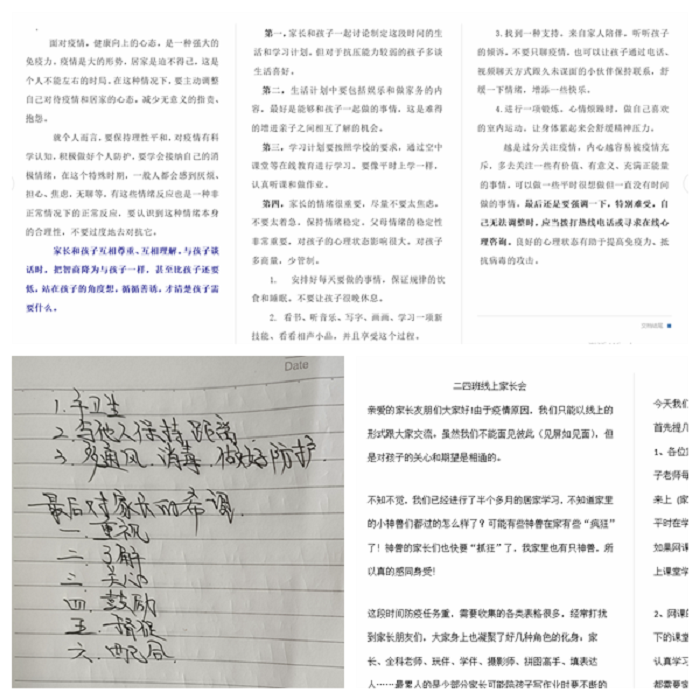 面对疫情。健康向上的心态，是一种强大的
免疫力，疫情是大的形势，居家是迫不得已，这是
个人不能左右的时局，在这种情况下，要主动调整
自己对待疫情和居家的心态。减少无意义的指责，
抱怨。
就个人而言，要保持理性平和，对疫情有科
学认知，积极做好个人防护，要学会接纳自己的消
极情绪，在这个特殊时期，一般人都会感到厌烦、
担心、焦虑、无聊等，有这些情绪反应也是一种非
正常情况下的正常反应，要认识到这种情绪本身
的合理性，不要过度地去对抗它。
家长和孩子互相尊重、互相理解。与孩子谈
话时，把智商降为与孩子一样，甚至比孩子还要
低，站在孩子的角度想，循循善诱，才清楚孩子需
要什么。
第一，家长和孩子一起讨论制定这段时间的生
活和学习计划。但对于抗压能力较弱的孩子多谈
生活喜好。
第二，生活计划中要包括娱乐和做家务的内
容。最好是能够和孩子一起做的事情，这是难得
的增进亲子之间相互了解的机会。
第三，学习计划要按照学校的要求，通过空中
课堂等在线教育进行学习。要像平时上学一样，
认真听课和做作业。
第四，家长的情绪很重要，尽量不要太焦虑。
不要太着急、保持情绪稳定、父母情绪的稳定性
非常重要。对孩子的心理状态影响很大。对孩子
多商量，少管制。
1. 安排好每天要做的事情，保证规律的饮
食和睡眠。不要让孩子很晚休息。
2. 看书、听音乐、写字、画画、学习一项新
技能、看看相声小品，并且享受这个过程，
3.找到一种支持。来自家人陪伴。听听孩子
的倾诉。不要只聊疫情，也可以让孩子通过电话、
视频聊天方式跟久未谋面的小伙伴保持联系，舒
缓一下情绪，增添一些快乐。
4.进行一项锻炼。心情烦躁时，做自己喜欢
的室内运动，让身体累起来会舒缓精神压力。
越是过分关注疫情，内心越容易被疫情充
斥，多去关注一些有价值、有意义、充满正能量
的事情，可以做一些平时很想做但一直没有时间
做的事情，最后还是要强调一下，特别难受。自
己无法调整时，应当拨打热线电话或寻求在线心
理咨询。良好的心理状态有助于提高免疫力、抵
抗病毒的攻击。
Date
1.手卫生
2.与他人保持距离
3.多通风、消毒、做好防护.
最后对家长的希望.
一.重视
二.了解
三.关心
四.鼓励
五.督促
六.
二四班线上家长会
亲爱的家长友朋们大家好!由于疫情原因，我们只能以线上的
形式跟大家交流，虽然我们不能面见彼此（见屏如见面），但
是对孩子的关心和期望是相通的。
不知不觉，我们已经进行了半个多月的居家学习，不知道家里
的小神兽们都过的怎么样了？可能有些神兽在家有些“疯狂”
了！神兽的家长们也快要“抓狂”了，我家里也有只神兽。所
以真的感同身受！
这段时间防疫任务重，需要收集的各类表格很多。经常打扰
到家长朋友们，大家身上也凝聚了好几种角色的化身，家
长、全科老师、玩伴、学伴、摄影师、拼图高手、填表达
人……最累人的是少部分家长可能陪孩子写作业时更不断的
今天我们
首先提几
1、各位
子老师每
来上（家
平时在学
如果网课
上课堂学
2、网课的
下的课堂
认真学习
都需要家